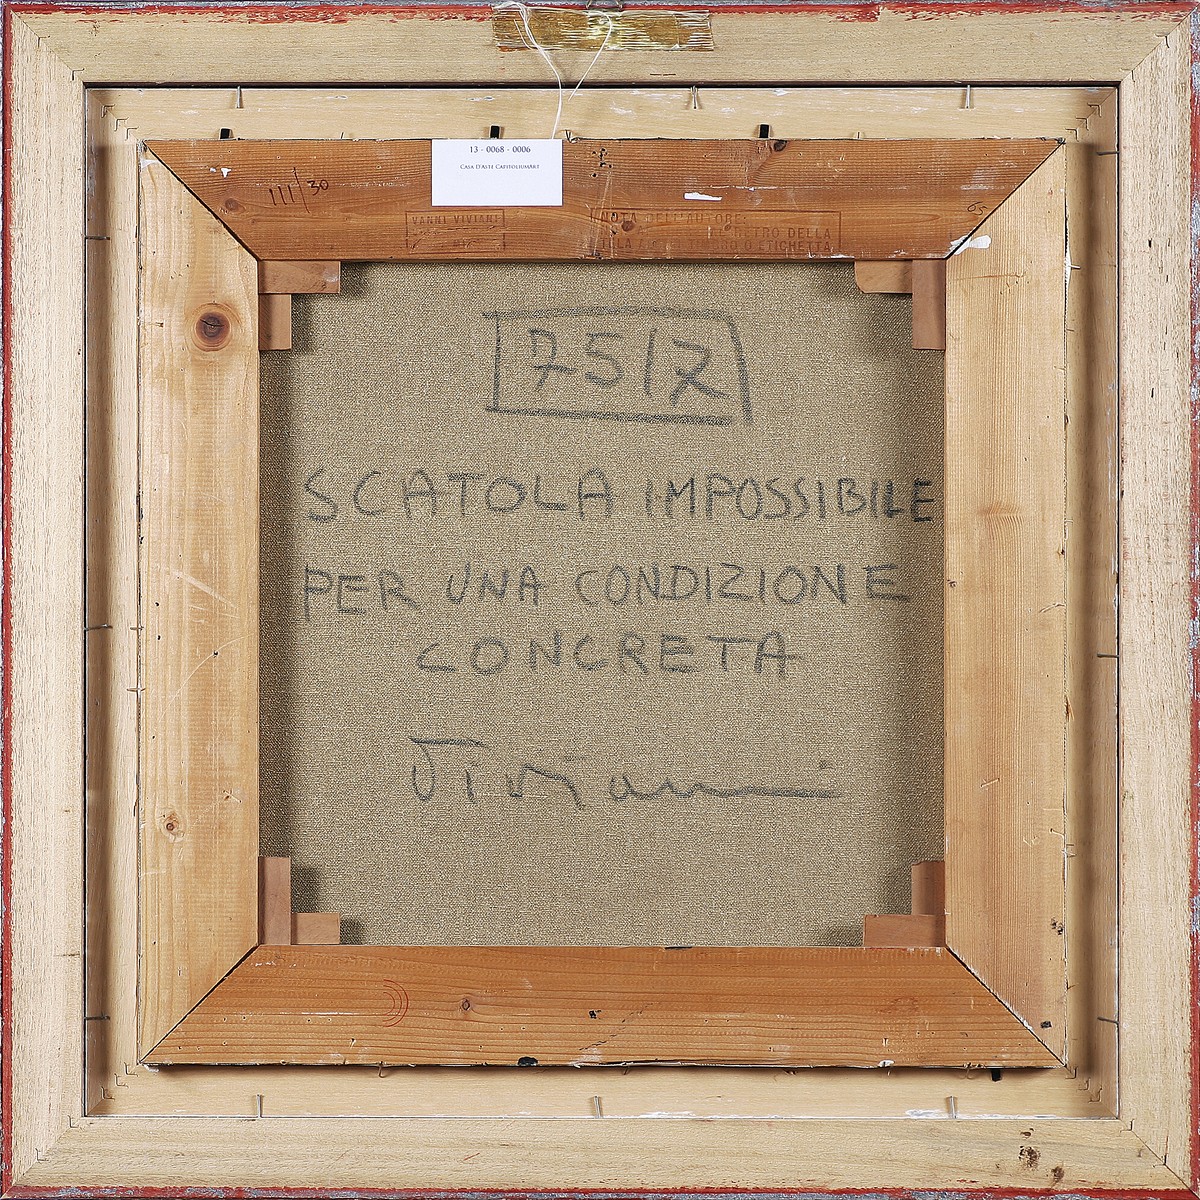 13 - 0068 - 0006
Casa D'Aste CapitoliumArt
III/30
65
VANNI VIVIANI
NOTA DELL'AUTORE:
RETRO DELLA
TELA O ETICHETTA
75/7
SCATOLA IMPOSSIBILE
PER UNA CONDIZIONE
CONCRETA
Viviani